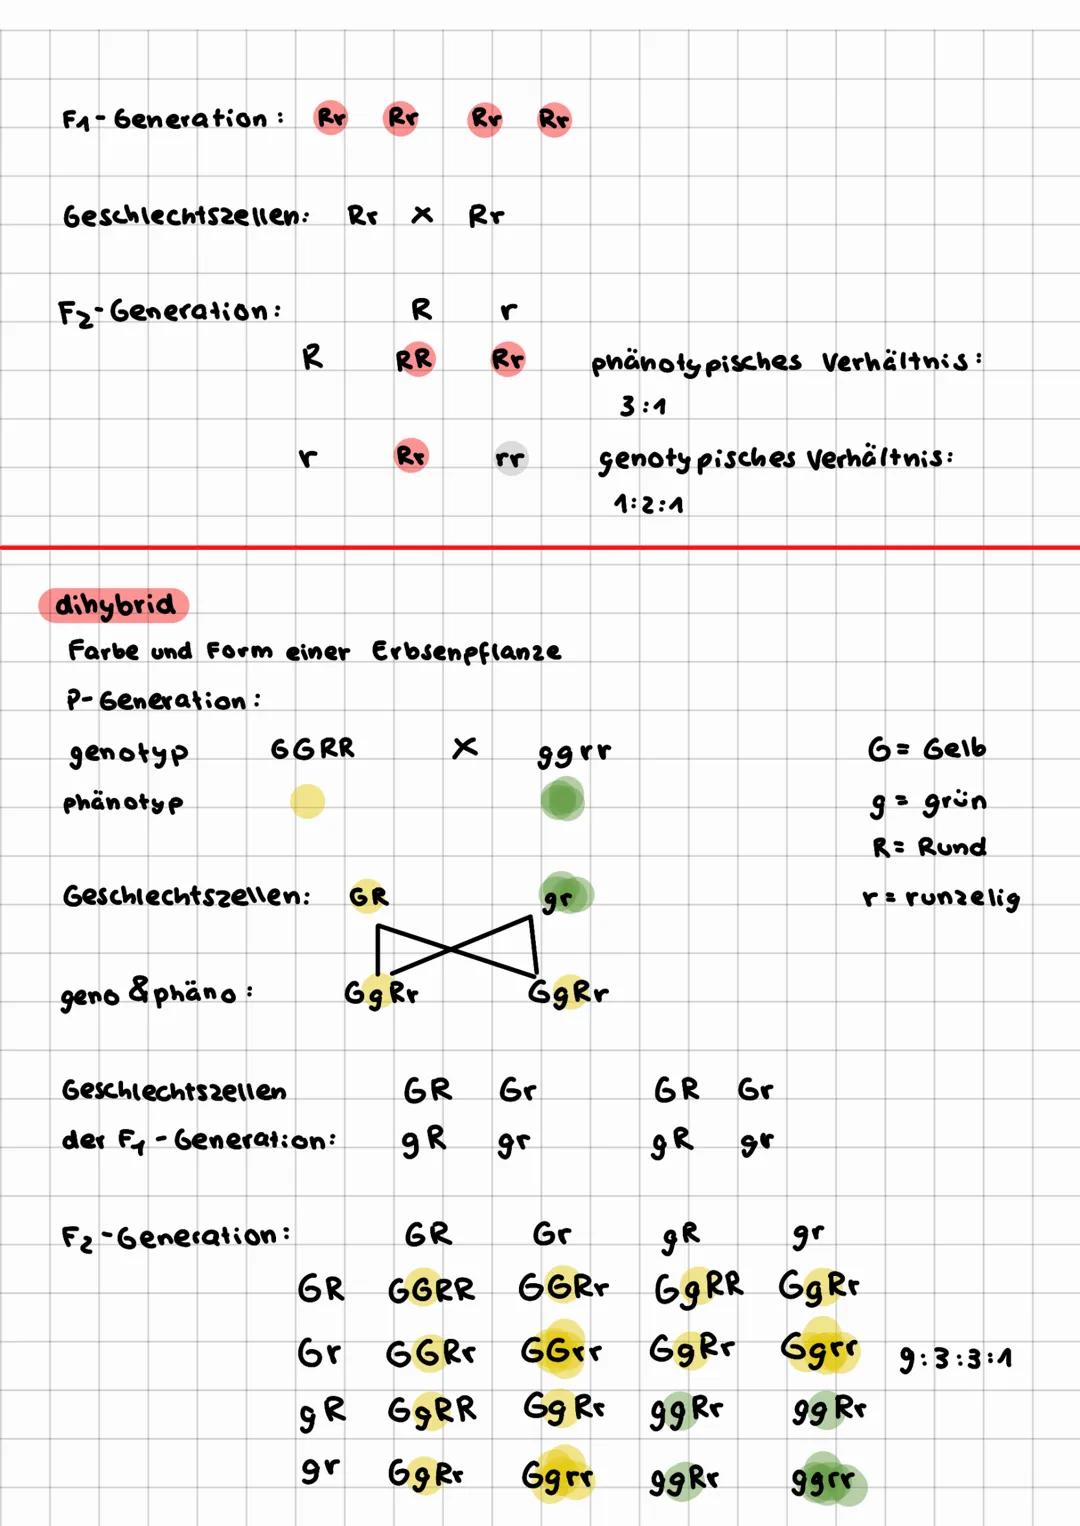 F1-Generation: Rr Rr Rr Rr
Geschlechtszellen: Rr x Rr
F2-Generation: R r
R RR Rr phänotypisches Verhältnis:
3:1
r Rr rr genotypisches Verhältnis:
1:2:1
dihybrid
Farbe und Form einer Erbsenpflanze
P-Generation:
genotyp GGRR x ggrr G= Gelb
phänotyp g= grün
R= Rund
Geschlechtszellen: GR gr r= runzelig
geno & phäno: GgRr GgRr
Geschlechtszellen GR Gr GR Gr
der F1-Generation: gR gr gR gr
F2-Generation: GR Gr gR gr
GR GGRR GGRr GgRR GgRr
Gr GGRr GGrr GgRr Ggrr 9:3:3:1
gR GgRR GgRr ggRr ggRr
gr GgRr Ggrr ggRr ggrr